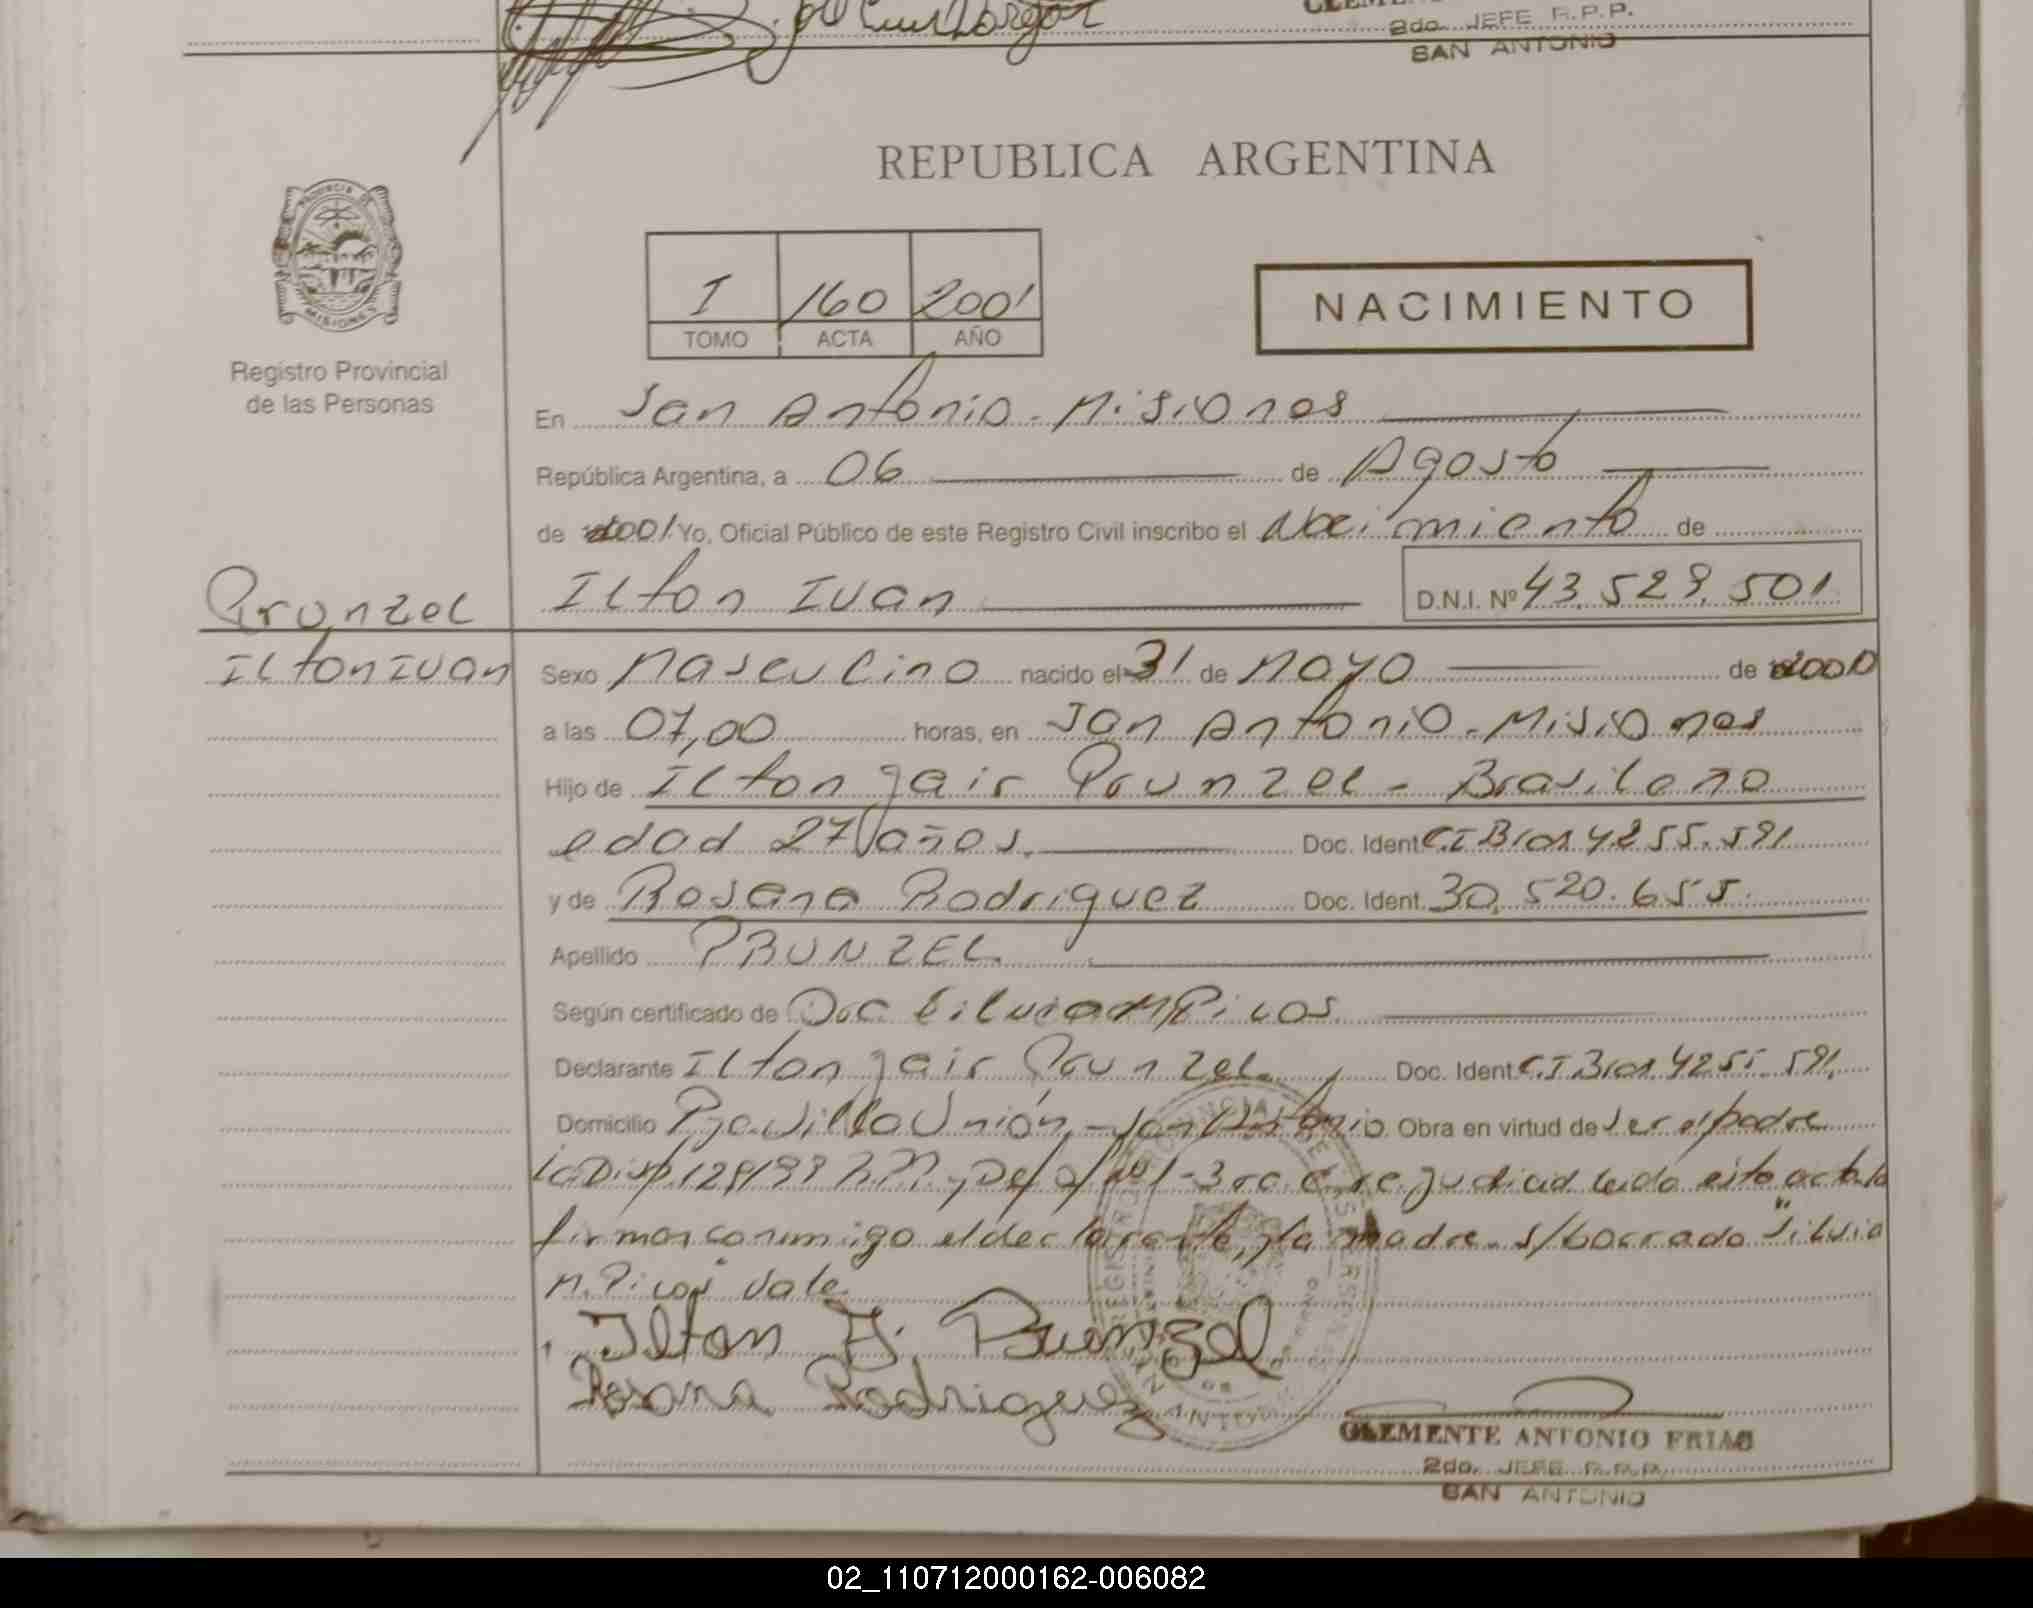 2do. JEFE R.P.P.
SAN ANTONIO
REPUBLICA ARGENTINA
PROVINCIA DE
MISIONES
I 160 2001
TOMO ACTA AÑO
NACIMIENTO
Registro Provincial
de las Personas
En San Antonio - Misiones
República Argentina, a 06 de Agosto
de 2001 Yo, Oficial Público de este Registro Civil inscribo el Nacimiento de
Prunzel
Ilton Ivan
Ilton Ivan D.N.I. Nº 43.529.501
Sexo Masculino nacido el 31 de Mayo de 2001
a las 07,00 horas, en San Antonio - Misiones
Hijo de Ilton Jair Prunzel - Brasileño
edad 27 años. Doc. Ident. C.I.Bras 4255.591
y de Rosana Rodriguez Doc. Ident. 30.520.655
Apellido PRUNZEL
Según certificado de Doc Silvia M Picos
Declarante Ilton Jair Prunzel Doc. Ident. C.I.Bras 4255.591.
Domicilio Pje Villa Unión - San Antonio. Obra en virtud de ser el padre
Disp. 129/99 leida este acta la
firman conmigo el declarante, y la madre. s/borrado "Silvia
M. Picos" Vale
Ilton J. Prunzel
Rosana Rodriguez
CLEMENTE ANTONIO FRIAS
2do. JEFE R.P.P.
SAN ANTONIO
02_110712000162-006082